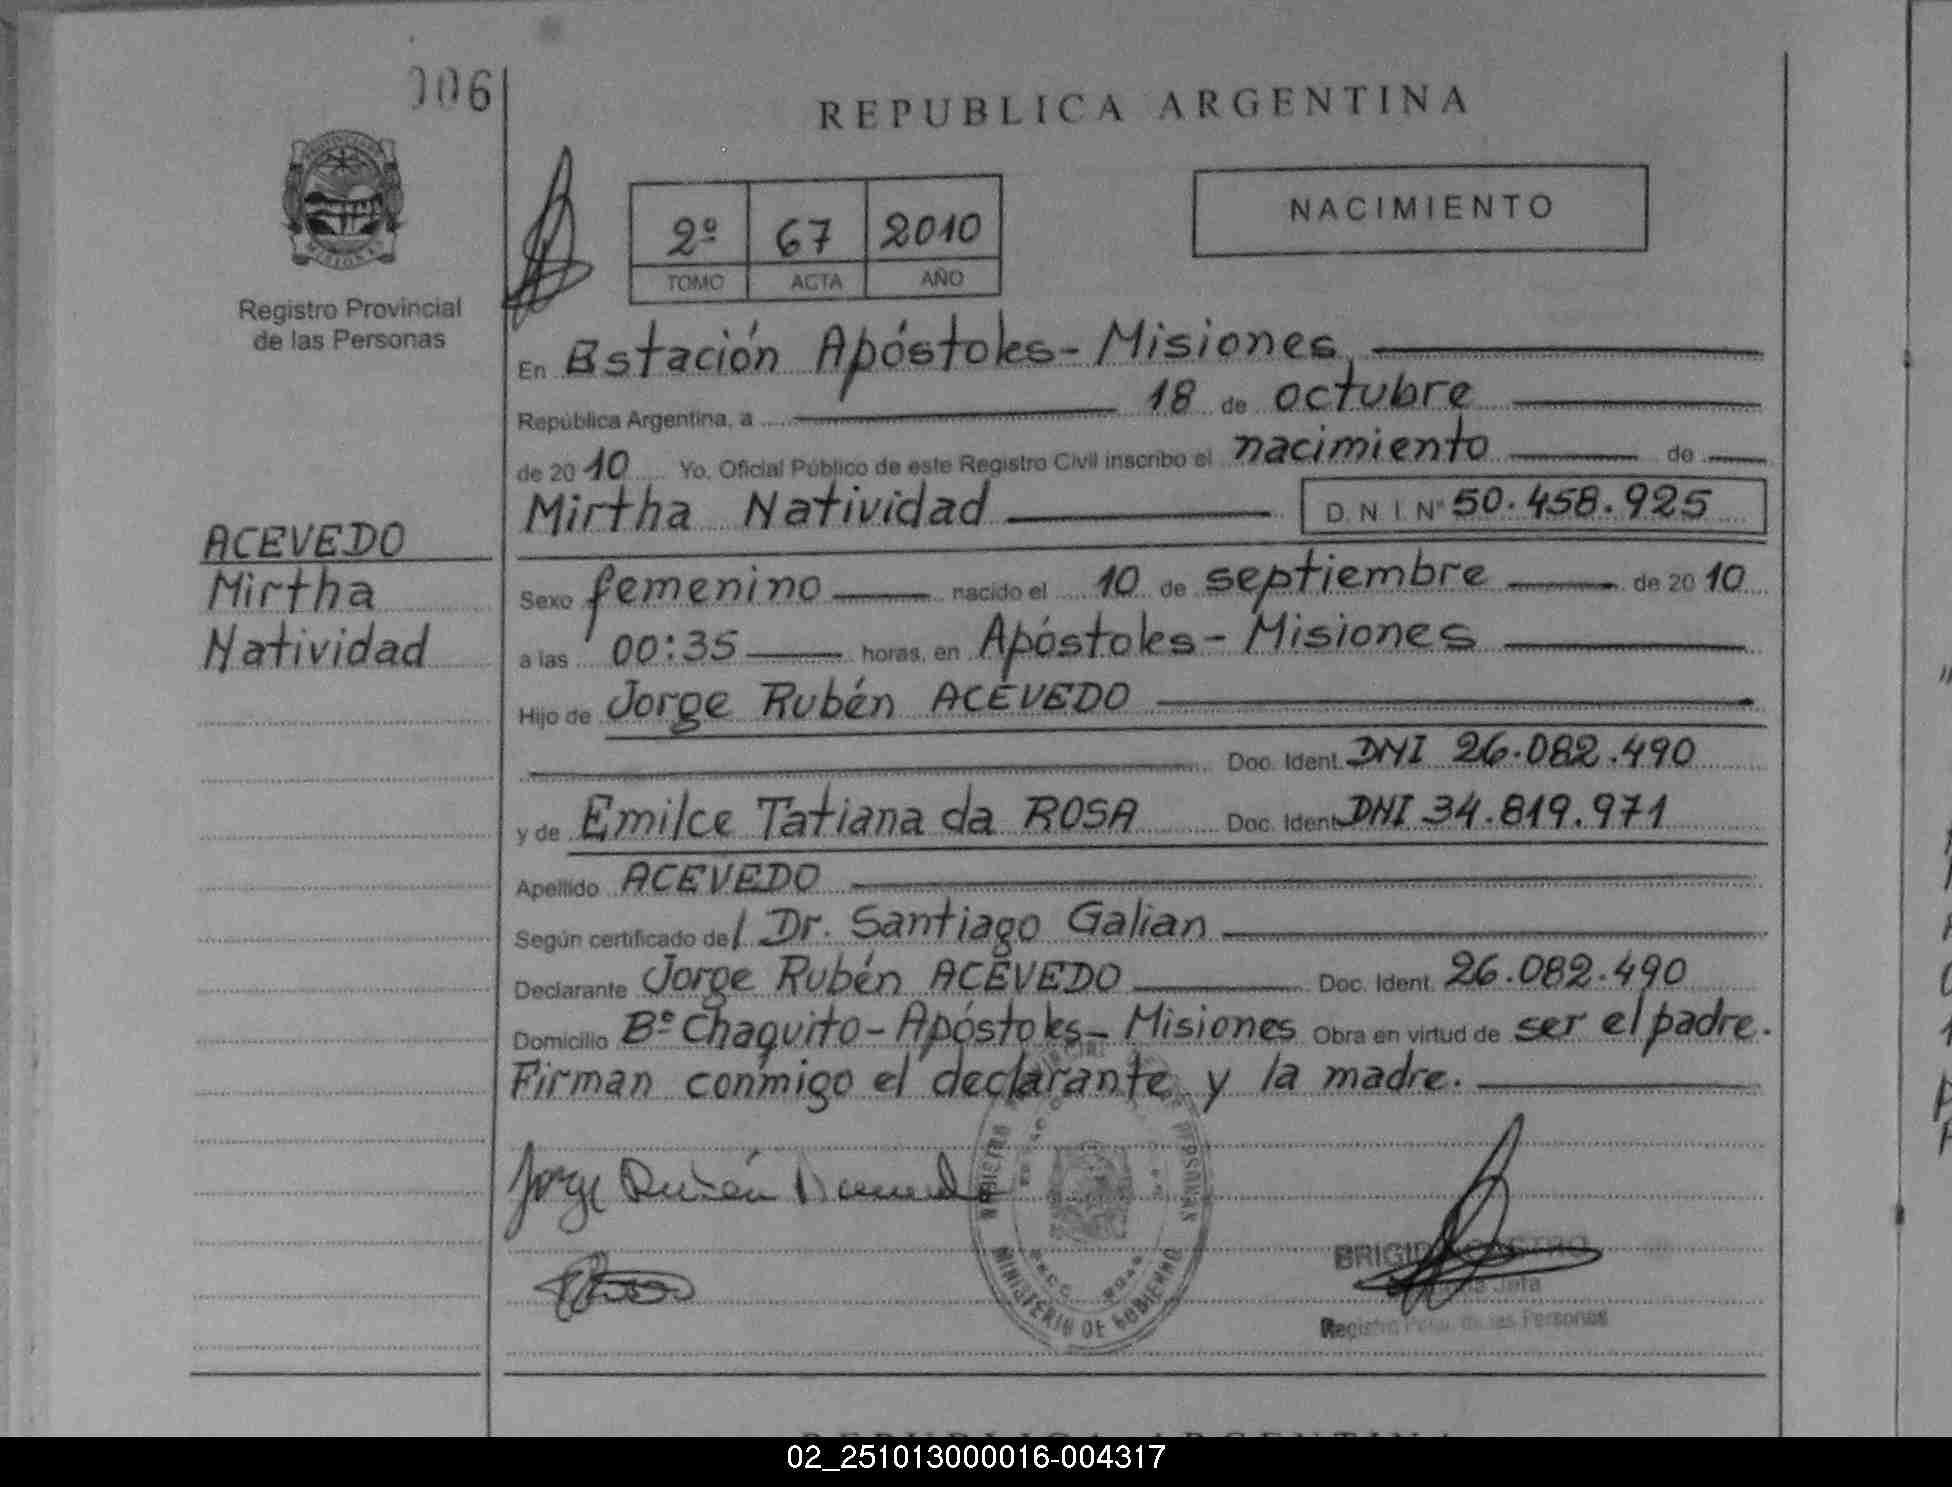 006
REPUBLICA ARGENTINA
NACIMIENTO
2º 67 2010
TOMO ACTA AÑO
Registro Provincial
de las Personas
En Estación Apóstoles - Misiones,
República Argentina, a 18 de octubre
de 2010 Yo, Oficial Público de este Registro Civil inscribo el nacimiento de
Mirtha Natividad D.N.I. Nº 50.458.925
ACEVEDO
Mirtha
Natividad
Sexo femenino nacido el 10 de septiembre de 2010
a las 00:35 horas, en Apóstoles - Misiones
Hijo de Jorge Rubén ACEVEDO
Doc. Ident. DNI 26.082.490
y de Emilce Tatiana da ROSA Doc. Ident. DNI 34.819.971
Apellido ACEVEDO
Según certificado del Dr. Santiago Galian
Declarante Jorge Rubén ACEVEDO Doc. Ident. 26.082.490
Domicilio Bº Chaquito - Apóstoles - Misiones Obra en virtud de ser el padre.
Firman conmigo el declarante y la madre.
Jorge Rubén
MINISTERIO DE GOBIERNO
Jefa
Registro de las Personas
REPUBLICA ARGENTINA
02_251013000016-004317